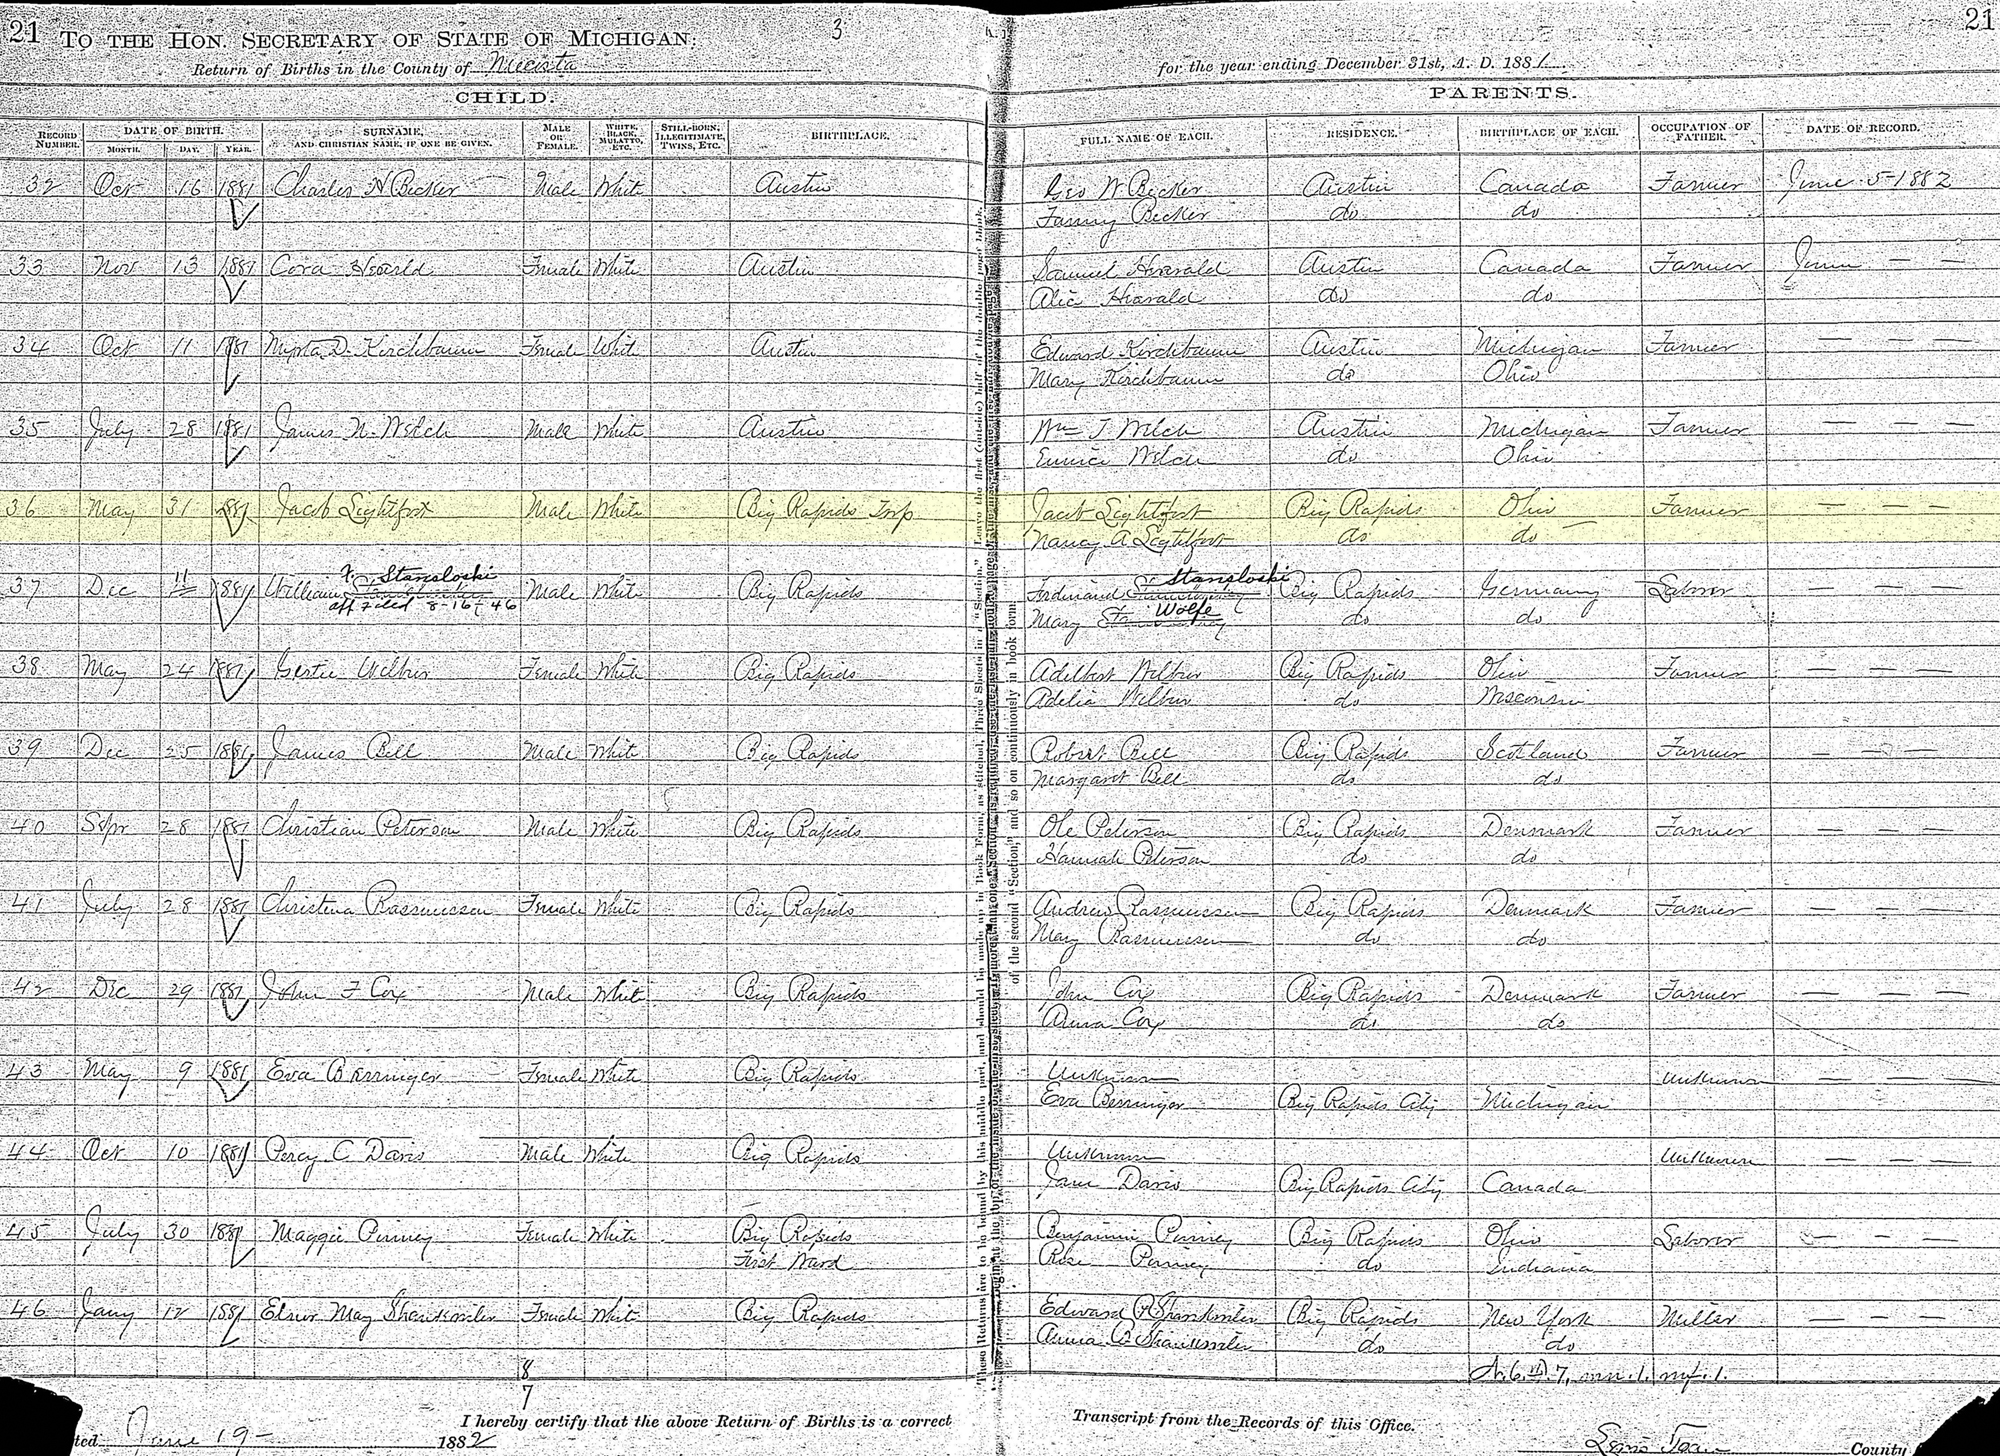 21 TO THE HON. SECRETARY OF STATE OF MICHIGAN: 3 21
Return of Births in the County of Mecosta for the year ending December 31st, A. D. 1881
CHILD. PARENTS.
RECORD NUMBER. DATE OF BIRTH. MONTH. DAY. YEAR. SURNAME, AND CHRISTIAN NAME, IF ONE BE GIVEN. MALE OR FEMALE. WHITE, BLACK, MULATTO, ETC. STILL-BORN, ILLEGITIMATE, TWINS, ETC. BIRTHPLACE. FULL NAME OF EACH. RESIDENCE. BIRTHPLACE OF EACH. OCCUPATION OF FATHER. DATE OF RECORD.
32 Oct 16 1881 Charles H Becker Male White Austin Geo W Becker Austin Canada Farmer June 5 1882
Fanny Becker do do
33 Nov 13 1881 Cora Herald Female White Austin Samuel Herald Austin Canada Farmer June — —
Alice Herald do do
34 Oct 11 1881 Myrta D. Kirchbaum Female White Austin Edward Kirchbaum Austin Michigan Farmer — — —
Mary Kirchbaum do Ohio
35 July 28 1881 James N. Welch Male White Austin Wm J Welch Austin Michigan Farmer — — —
Eunice Welch do Ohio
36 May 31 1881 Jacob Lightfoot Male White Big Rapids Twp Jacob Lightfoot Big Rapids Ohio Farmer — — —
Nancy A Lightfoot do do
F. Stanaloski Stanaloski
37 Dec 11 1881 William Male White Big Rapids Ferdinand Big Rapids Germany Laborer — — —
aff filed 8-16-46 Mary Wolfe do do
38 May 24 1881 Gertie Wilbur Female White Big Rapids Adelbert Wilbur Big Rapids Ohio Farmer — — —
Adelia Wilbur do Wisconsin
39 Dec 25 1881 James Bell Male White Big Rapids Robert Bell Big Rapids Scotland Farmer — — —
Margaret Bell do do
40 Sept 28 1881 Christian Peterson Male White Big Rapids Ole Peterson Big Rapids Denmark Farmer — — —
Hannah Peterson do do
41 July 28 1881 Christena Rasmussen Female White Big Rapids Andrew Rasmussen Big Rapids Denmark Farmer — — —
Mary Rasmussen do do
42 Dec 29 1881 John F Cox Male White Big Rapids John Cox Big Rapids Denmark Farmer — — —
Anna Cox do do
43 May 9 1881 Eva Berringer Female White Big Rapids Unknown Unknown — — —
Eva Berringer Big Rapids City Michigan
44 Oct 10 1881 Percy C Davis Male White Big Rapids Unknown Unknown — — —
Jane Davis Big Rapids City Canada
45 July 30 1881 Maggie Pinney Female White Big Rapids Benjamin Pinney Big Rapids Ohio Laborer — — —
First Ward Rose Pinney do Indiana
46 Jany 12 1881 May Female White Big Rapids Edward Big Rapids New York Miller — — —
Anna do do
8
7
I hereby certify that the above Return of Births is a correct Transcript from the Records of this Office.
ted June 19 1882 County